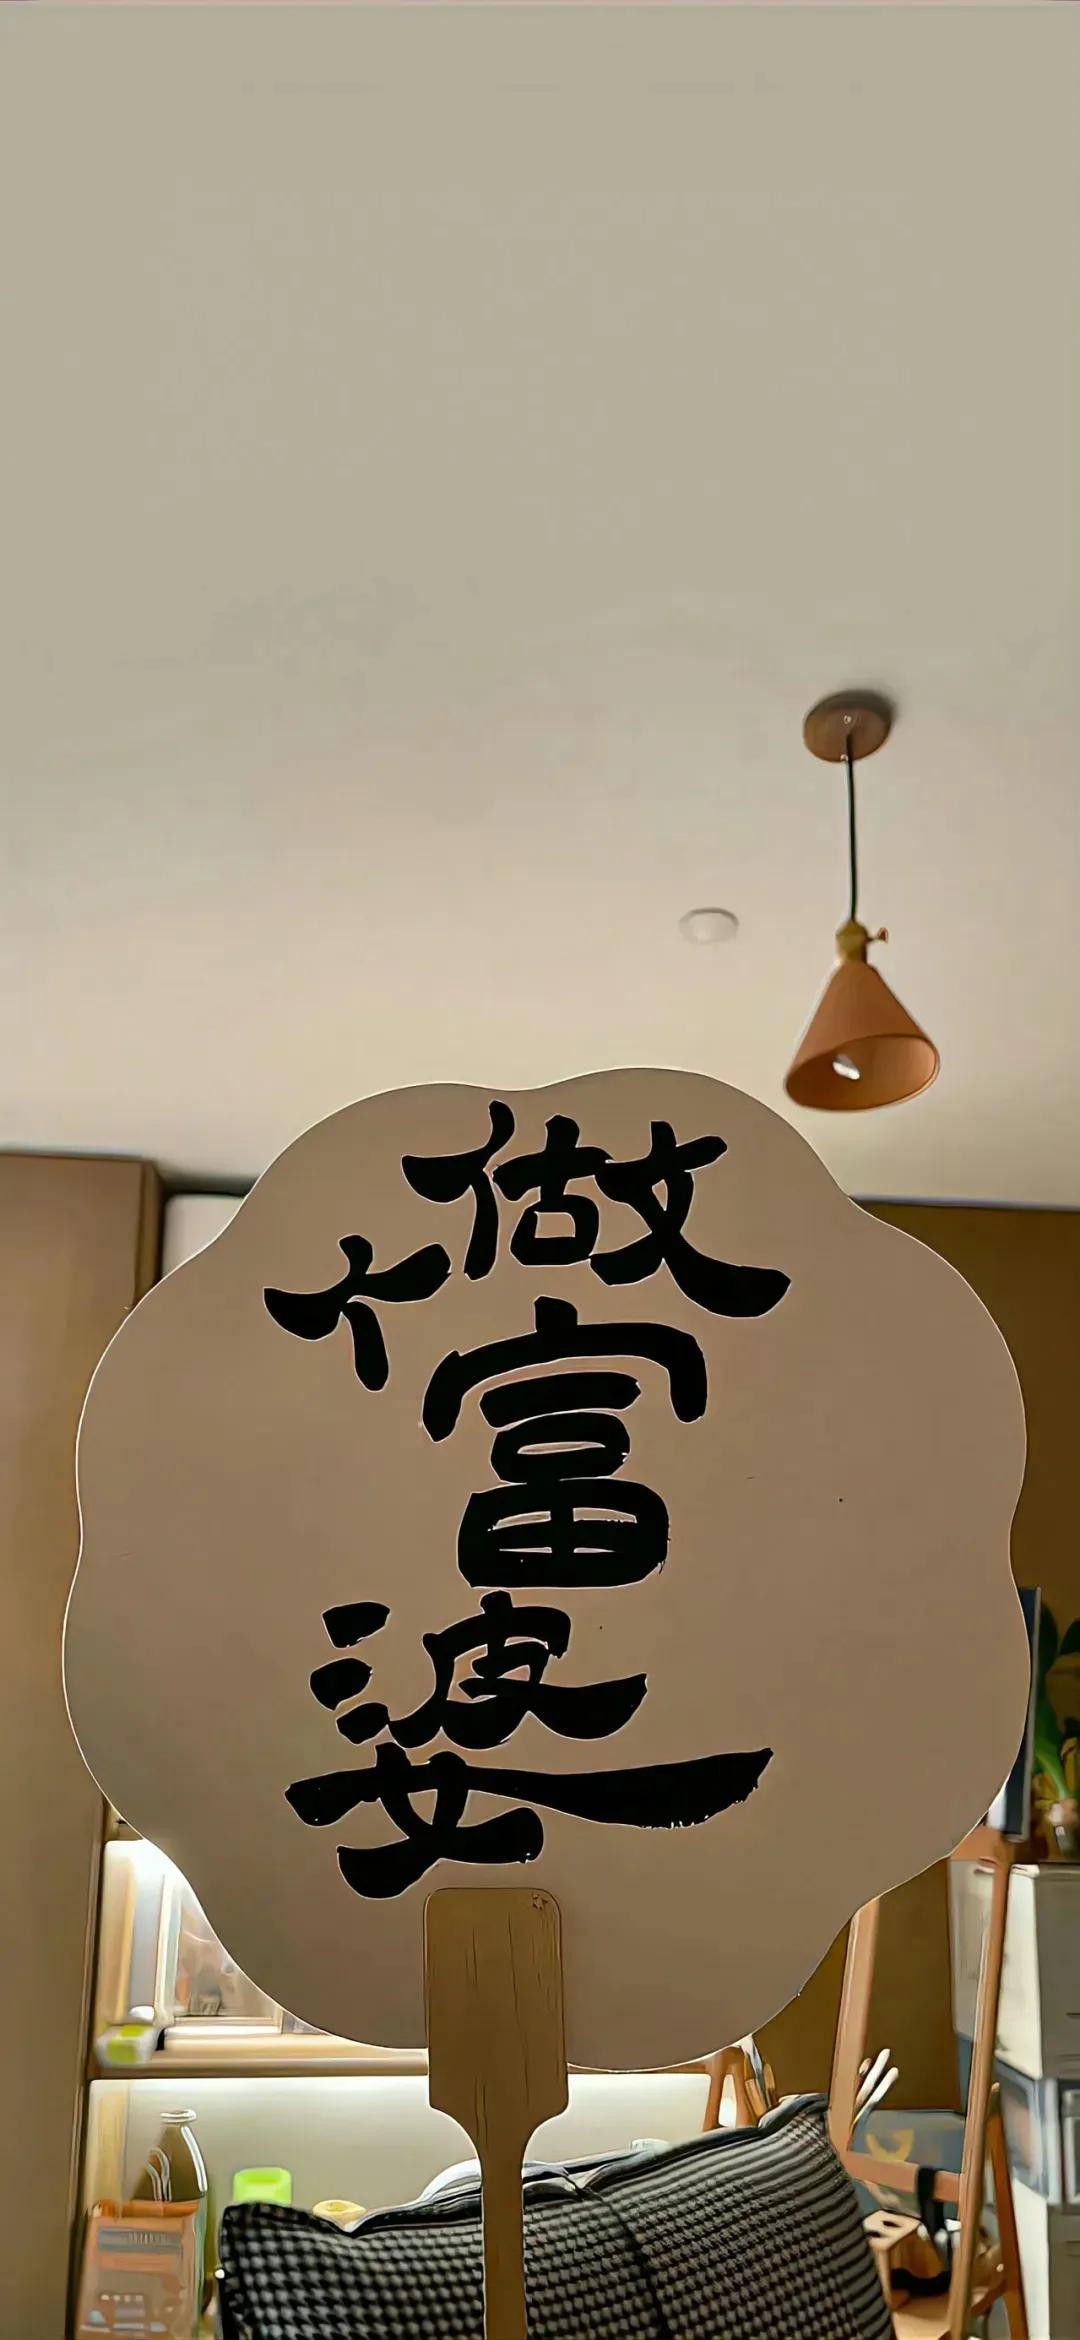 做
个
富
婆